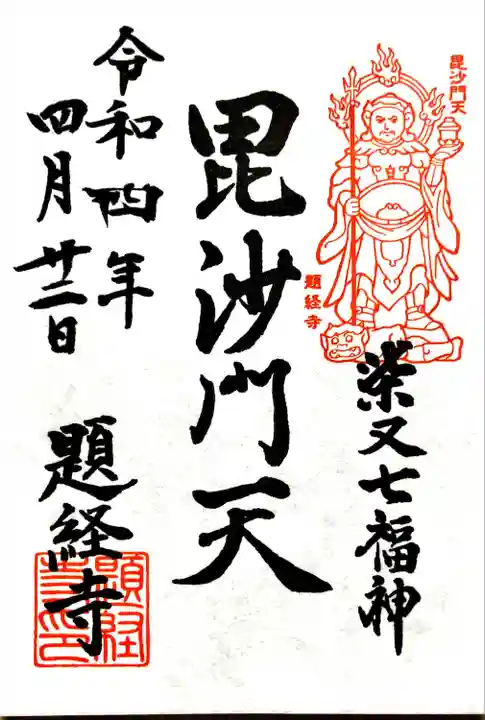 毘沙門天
題経寺
柴又七福神
毘沙門天
令和四年
四月廿二日
題経寺
題経寺印